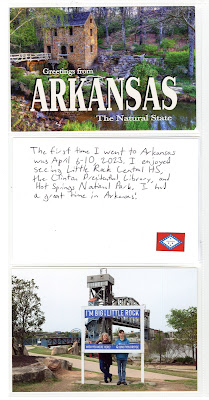 Greetings from
ARKANSAS
The Natural State
The first time I went to Arkansas
was April 6-10, 2023. I enjoyed
seeing Little Rock Central HS,
the Clinton Presidential Library, and
Hot Springs National Park. I had
a great time in Arkansas!
I'M BIG ON LITTLE ROCK